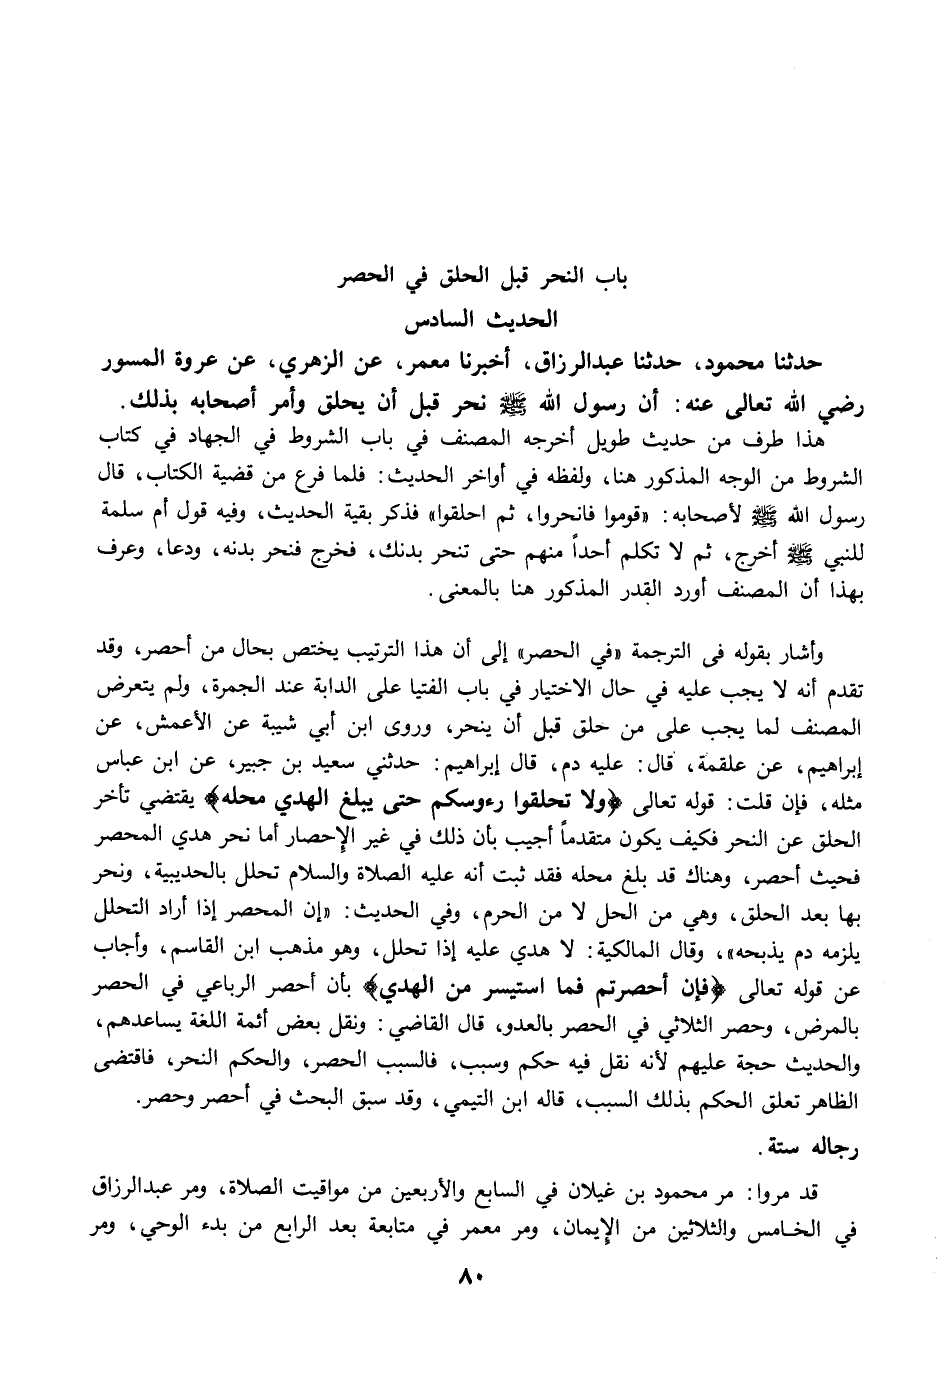 باب النحر قبل الحلق في الحصر
الحديث السادس
حدثنا محمود، حدثنا عبدالرزاق، أخبرنا معمر، عن الزهري، عن عروة المسور
رضي الله تعالى عنه: أن رسول الله ﷺ نحر قبل أن يحلق وأمر أصحابه بذلك.
هذا طرف من حديث طويل أخرجه المصنف في باب الشروط في الجهاد في كتاب
الشروط من الوجه المذكور هنا، ولفظه في أواخر الحديث: فلما فرع من قضية الكتاب، قال
رسول الله ﷺ لأصحابه: «قوموا فانحروا، ثم احلقوا» فذكر بقية الحديث، وفيه قول أم سلمة
للنبي ﷺ أخرج، ثم لا تكلم أحداً منهم حتى تنحر بدنك، فخرج فنحر بدنه، ودعا، وعرف
بهذا أن المصنف أورد القدر المذكور هنا بالمعنى.
وأشار بقوله فى الترجمة «في الحصر» إلى أن هذا الترتيب يختص بحال من أحصر، وقد
تقدم أنه لا يجب عليه في حال الاختيار في باب الفتيا على الدابة عند الجمرة، ولم يتعرض
المصنف لما يجب على من حلق قبل أن ينحر، وروى ابن أبي شيبة عن الأعمش، عن
إبراهيم، عن علقمة، قال: عليه دم، قال إبراهيم: حدثني سعيد بن جبير، عن ابن عباس
مثله، فإن قلت: قوله تعالى ﴿ولا تحلقوا رءوسكم حتى يبلغ الهدي محله﴾ يقتضي تأخر
الحلق عن النحر فكيف يكون متقدماً أجيب بأن ذلك في غير الإحصار أما نحر هدي المحصر
فحيث أحصر، وهناك قد بلغ محله فقد ثبت أنه عليه الصلاة والسلام تحلل بالحديبية، ونحر
بها بعد الحلق، وهي من الحل لا من الحرم، وفي الحديث: «إن المحصر إذا أراد التحلل
يلزمه دم يذبحه»، وقال المالكية: لا هدي عليه إذا تحلل، وهو مذهب ابن القاسم، وأجاب
عن قوله تعالى ﴿فإن أحصرتم فما استيسر من الهدي﴾ بأن أحصر الرباعي في الحصر
بالمرض، وحصر الثلاثي في الحصر بالعدو، قال القاضي: ونقل بعض أئمة اللغة يساعدهم،
والحديث حجة عليهم لأنه نقل فيه حكم وسبب، فالسبب الحصر، والحكم النحر، فاقتضى
الظاهر تعلق الحكم بذلك السبب، قاله ابن التيمي، وقد سبق البحث في أحصر وحصر.
رجاله ستة.
قد مروا: مر محمود بن غيلان في السابع والأربعين من مواقيت الصلاة، ومر عبدالرزاق
في الخامس والثلاثين من الإيمان، ومر معمر في متابعة بعد الرابع من بدء الوحي، ومر
٨٠